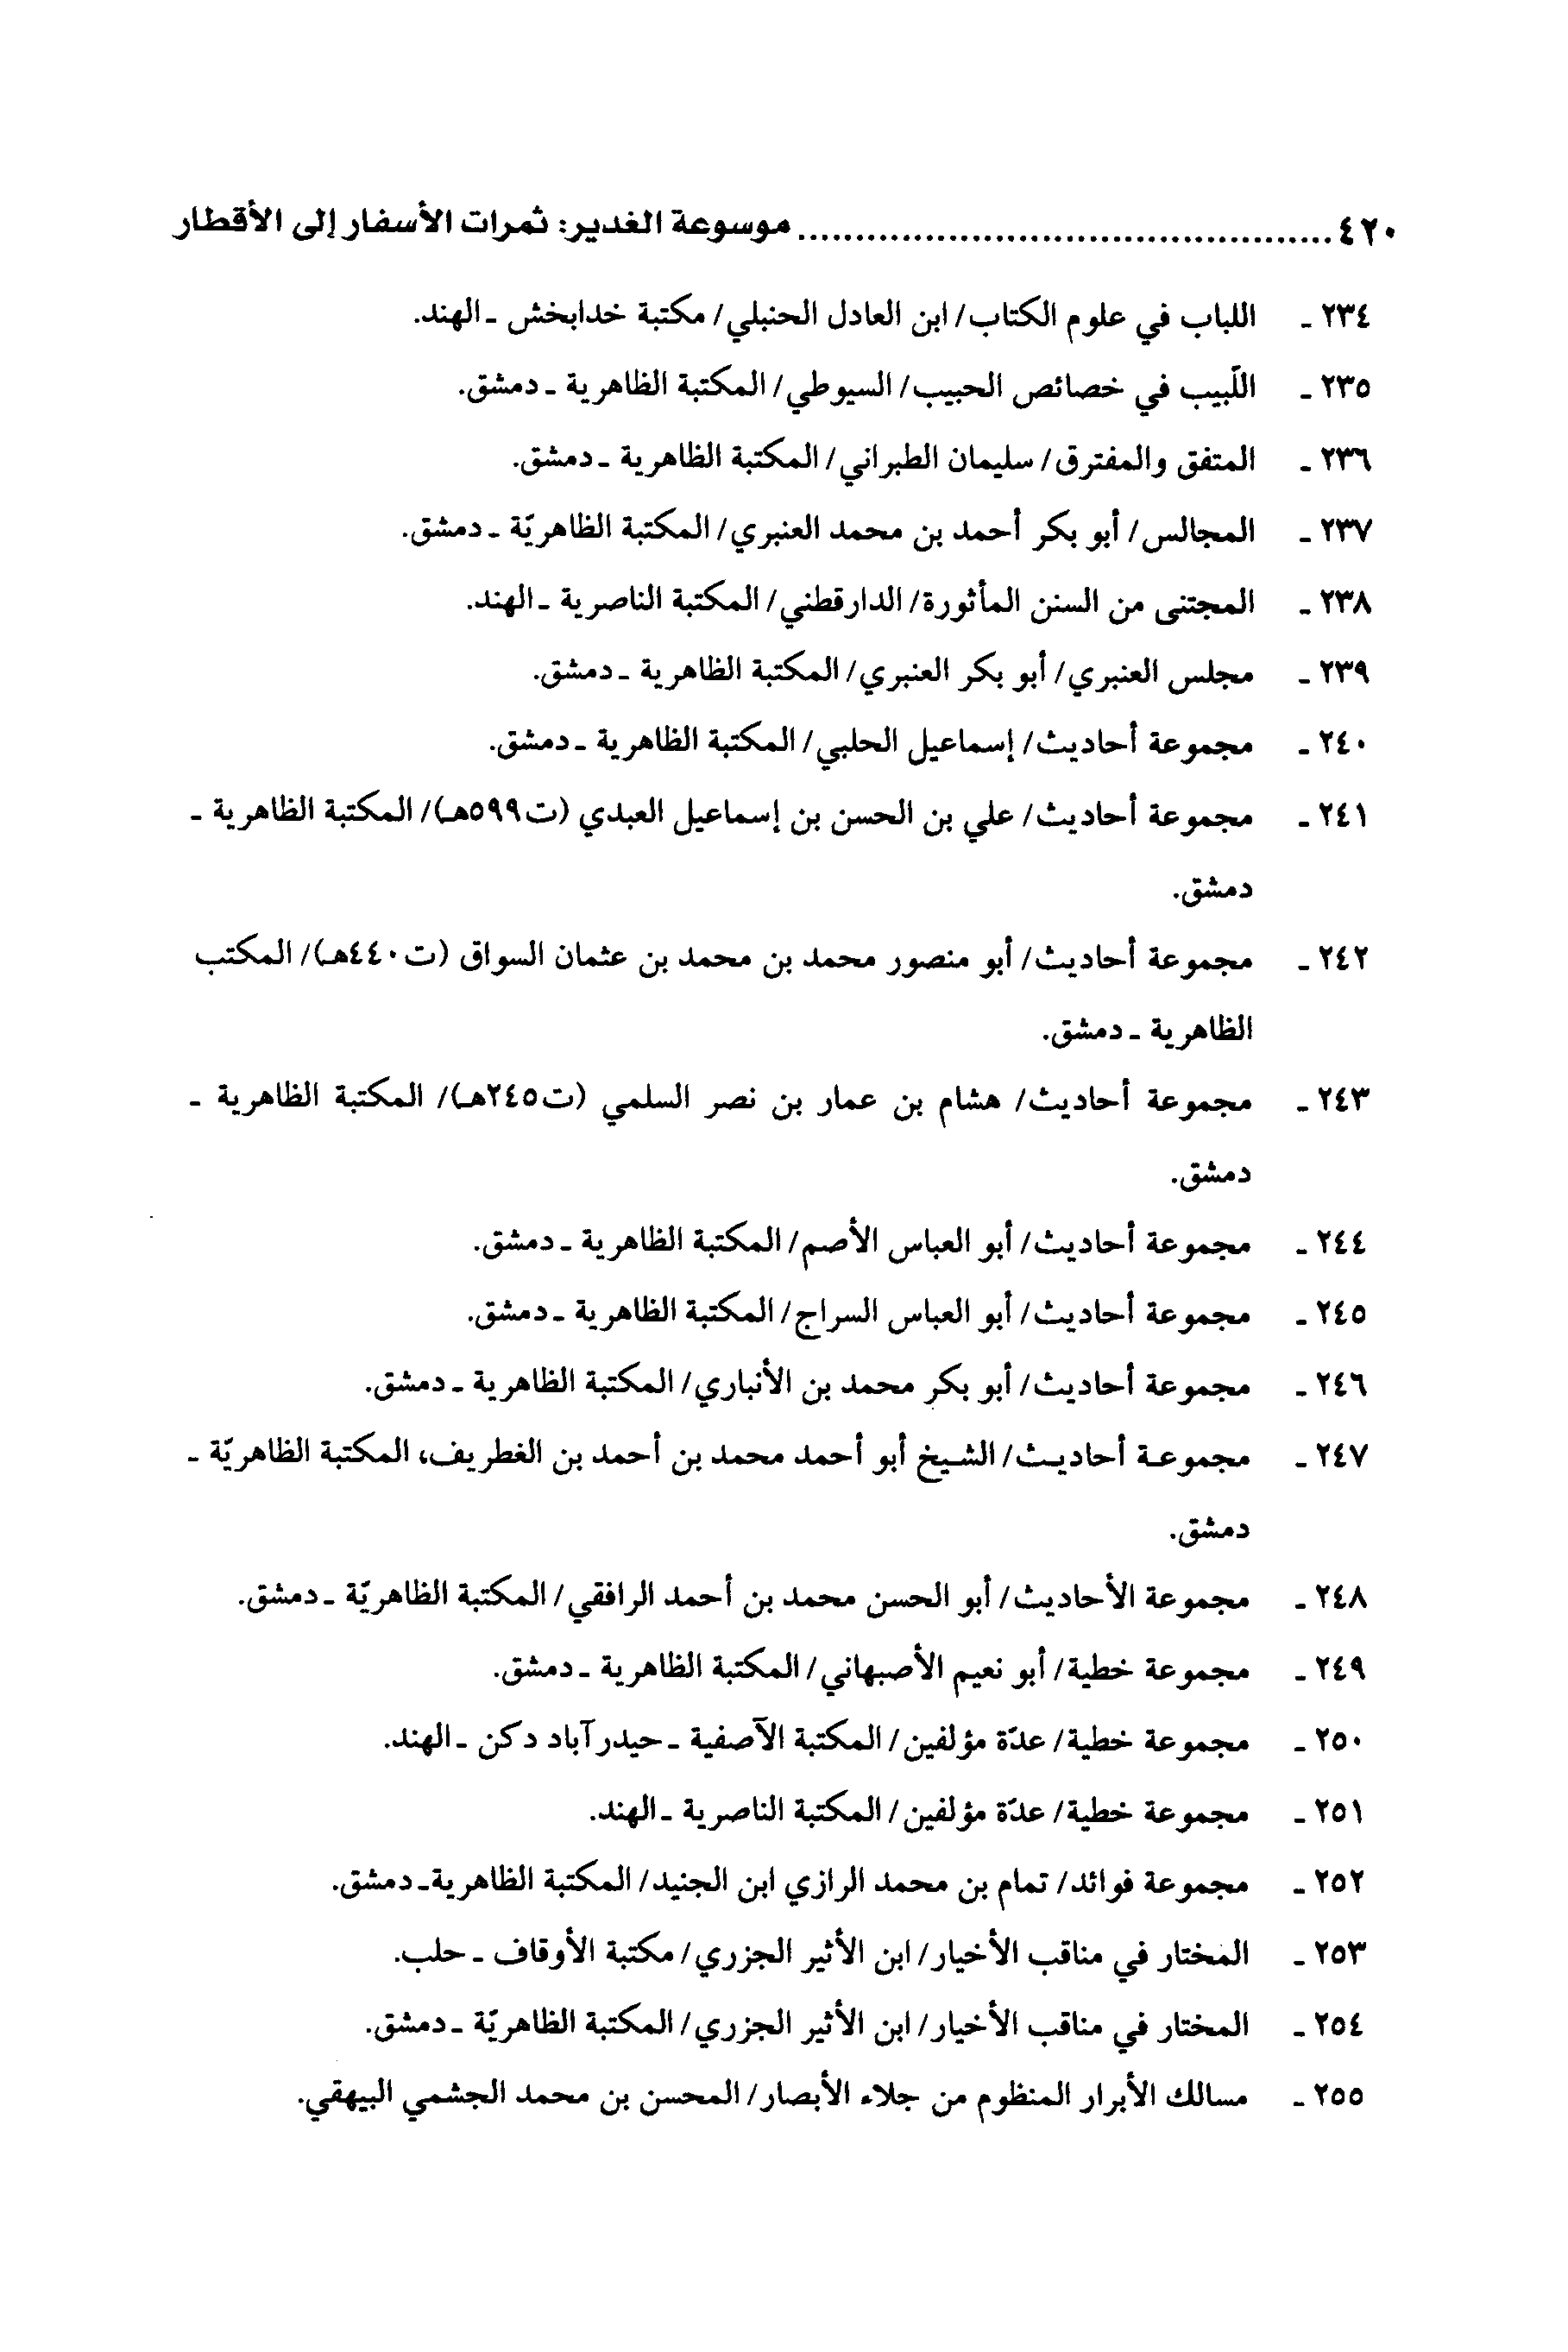 ٤٢٠ ............................................... موسوعة الغدير: ثمرات الأسفار إلى الأقطار
٢٣٤ ـ اللباب في علوم الكتاب/ ابن العادل الحنبلي/ مكتبة خدابخش ـ الهند.
٢٣٥ ـ اللّبيب في خصائص الحبيب/ السيوطي/ المكتبة الظاهرية ـ دمشق.
٢٣٦ ـ المتفق والمفترق/ سليمان الطبراني/ المكتبة الظاهرية ـ دمشق.
٢٣٧ ـ المجالس/ أبو بكر أحمد بن محمد العنبري/ المكتبة الظاهريّة ـ دمشق.
٢٣٨ ـ المجتنى من السنن المأثورة/ الدارقطني/ المكتبة الناصرية ـ الهند.
٢٣٩ ـ مجلس العنبري/ أبو بكر العنبري/ المكتبة الظاهرية ـ دمشق.
٢٤٠ ـ مجموعة أحاديث/ إسماعيل الحلبي/ المكتبة الظاهرية ـ دمشق.
٢٤١ ـ مجموعة أحاديث/ علي بن الحسن بن إسماعيل العبدي (ت٥٩٩هـ)/ المكتبة الظاهرية ـ
دمشق.
٢٤٢ ـ مجموعة أحاديث/ أبو منصور محمد بن محمد بن عثمان السواق (ت٤٤٠هـ)/ المكتب
الظاهرية ـ دمشق.
٢٤٣ ـ مجموعة أحاديث/ هشام بن عمار بن نصر السلمي (ت٢٤٥هـ)/ المكتبة الظاهرية ـ
دمشق.
٢٤٤ ـ مجموعة أحاديث/ أبو العباس الأصم/ المكتبة الظاهرية ـ دمشق.
٢٤٥ ـ مجموعة أحاديث/ أبو العباس السراج/ المكتبة الظاهرية ـ دمشق.
٢٤٦ ـ مجموعة أحاديث/ أبو بكر محمد بن الأنباري/ المكتبة الظاهرية ـ دمشق.
٢٤٧ ـ مجموعـة أحاديـث/ الشـيخ أبو أحمد محمد بن أحمد بن الغطريف، المكتبة الظاهريّة ـ
دمشق.
٢٤٨ ـ مجموعة الأحاديث/ أبو الحسن محمد بن أحمد الرافقي/ المكتبة الظاهريّة ـ دمشق.
٢٤٩ ـ مجموعة خطية/ أبو نعيم الأصبهاني/ المكتبة الظاهرية ـ دمشق.
٢٥٠ ـ مجموعة خطية/ عدّة مؤلفين/ المكتبة الآصفية ـ حيدرآباد دكن ـ الهند.
٢٥١ ـ مجموعة خطية/ عدّة مؤلفين/ المكتبة الناصرية ـ الهند.
٢٥٢ ـ مجموعة فوائد/ تمام بن محمد الرازي ابن الجنيد/ المكتبة الظاهرية ـ دمشق.
٢٥٣ ـ المختار في مناقب الأخيار/ ابن الأثير الجزري/ مكتبة الأوقاف ـ حلب.
٢٥٤ ـ المختار في مناقب الأخيار/ ابن الأثير الجزري/ المكتبة الظاهريّة ـ دمشق.
٢٥٥ ـ مسالك الأبرار المنظوم من جلاء الأبصار/ المحسن بن محمد الجشمي البيهقي.